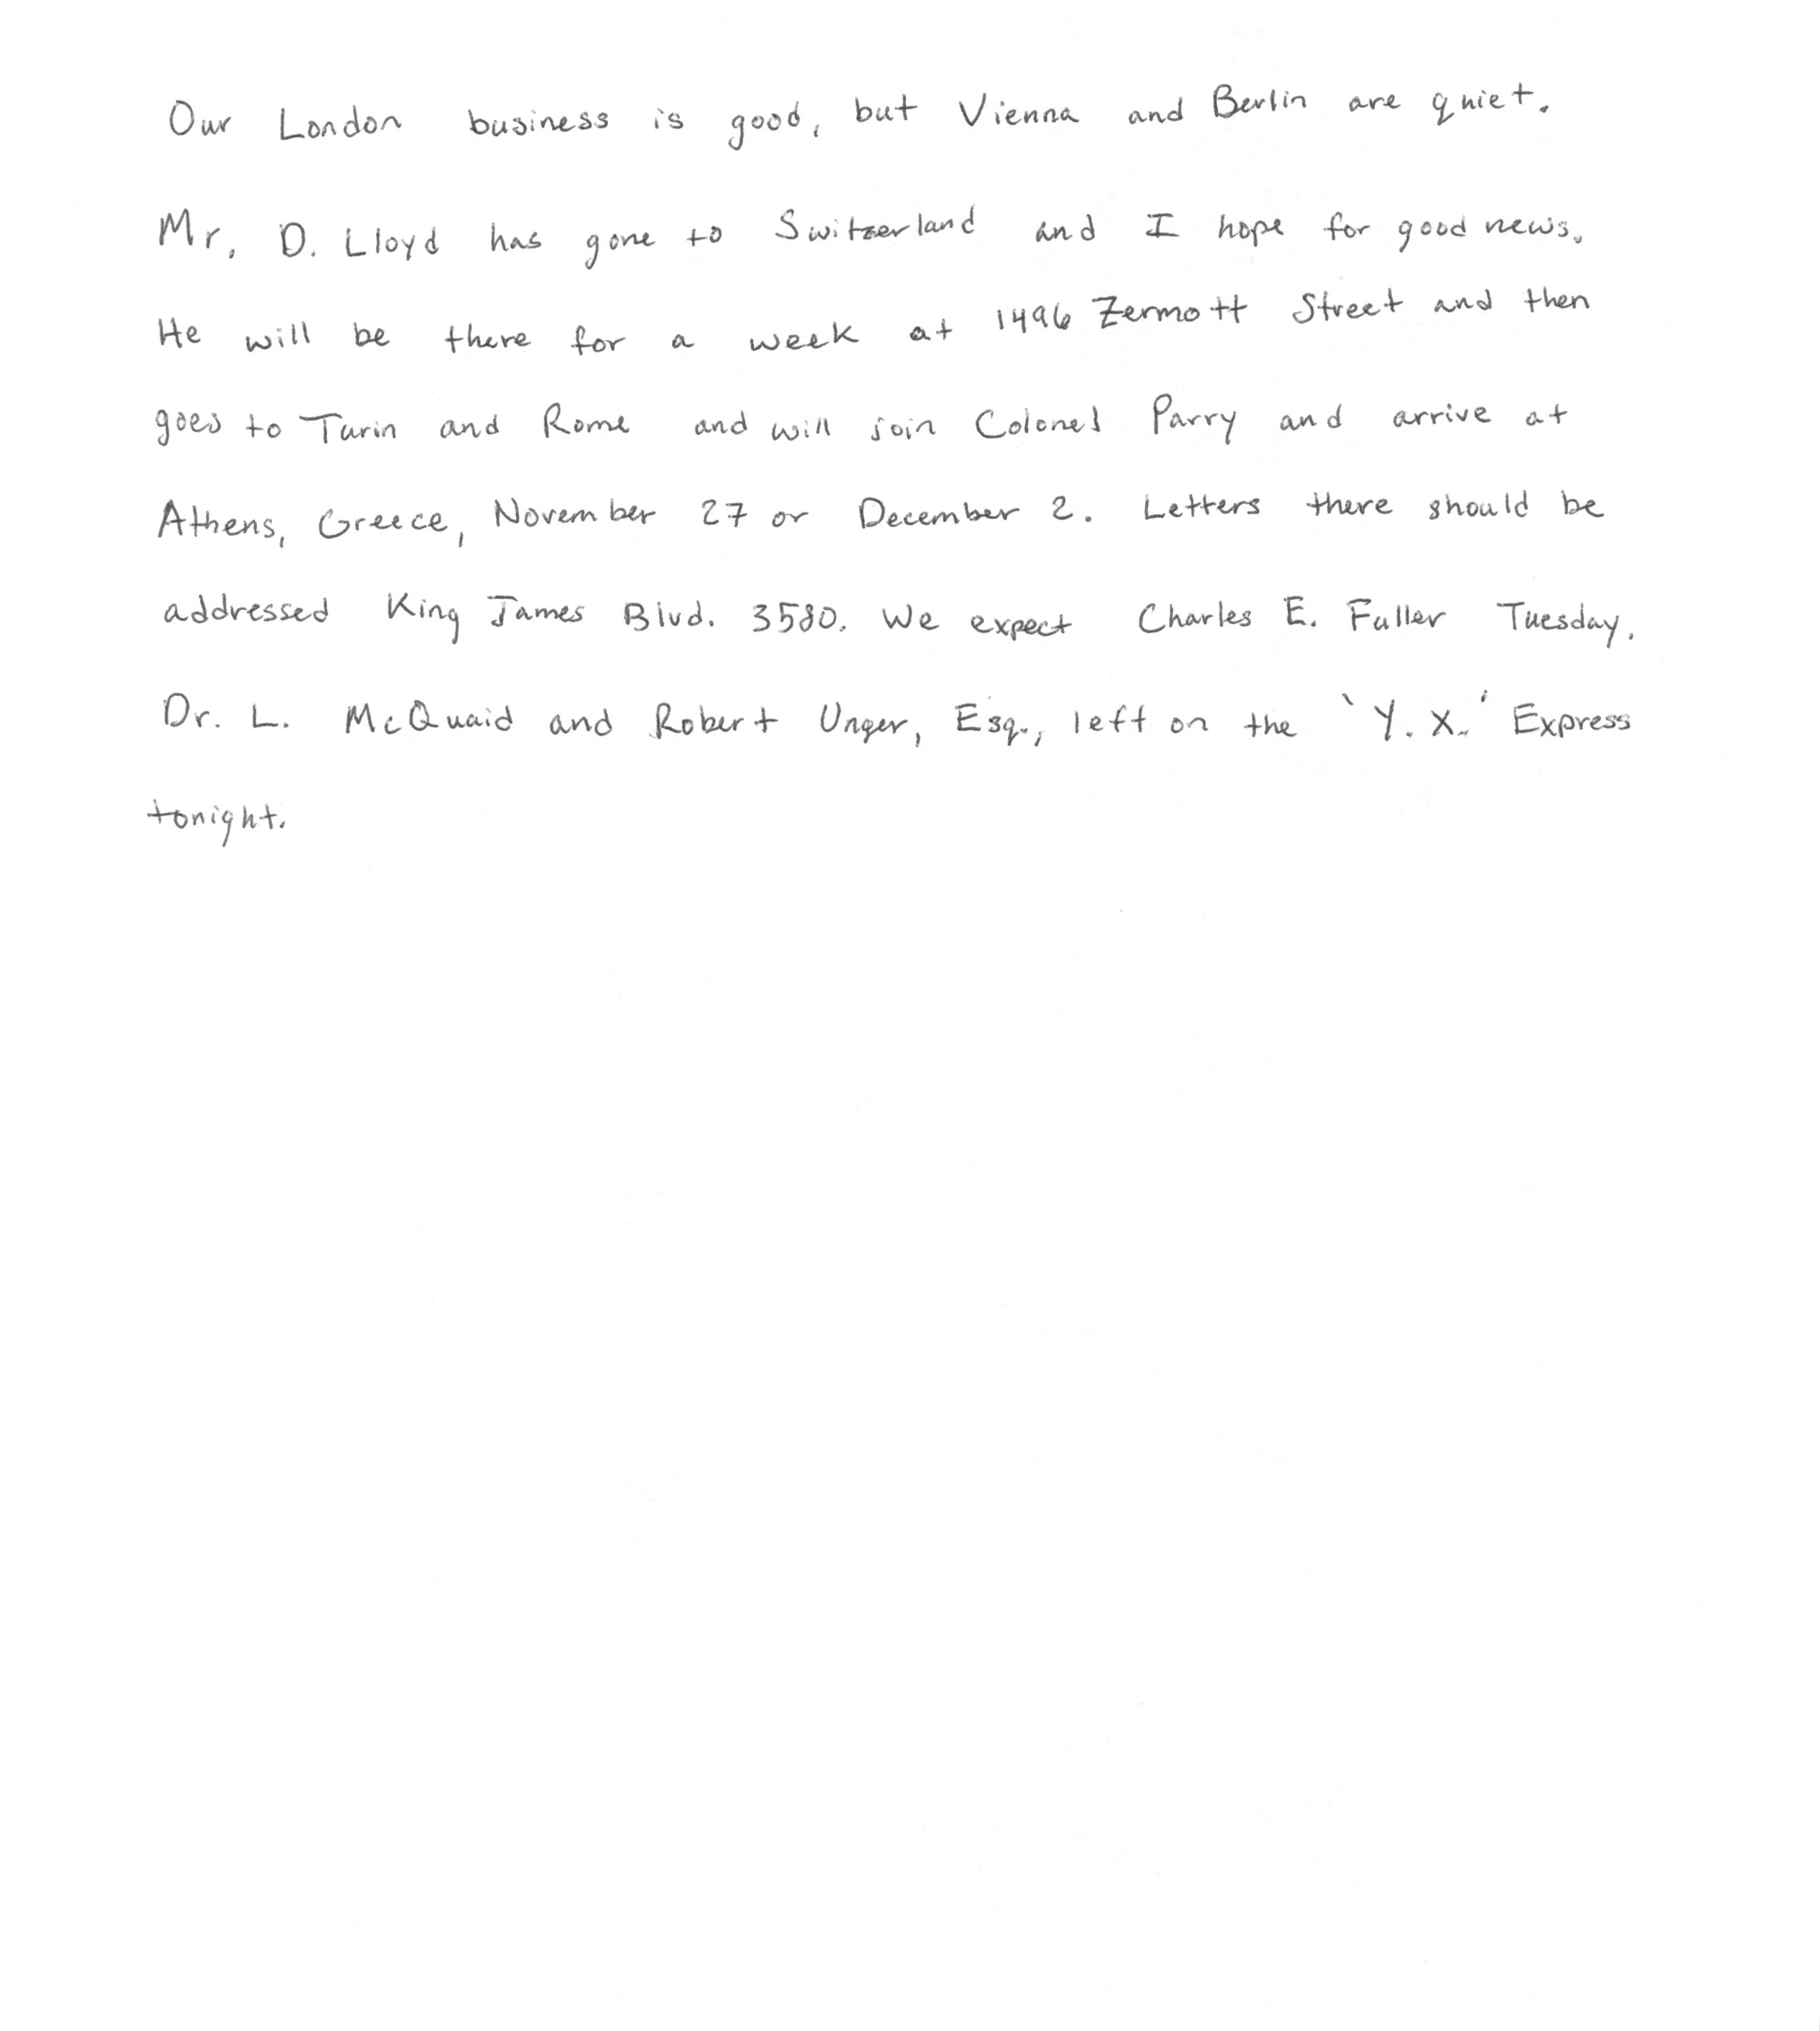 Our London business is good, but Vienna and Berlin are quiet.
Mr. D. Lloyd has gone to Switzerland and I hope for good news.
He will be there for a week at 1496 Zermott Street and then
goes to Turin and Rome and will join Colonel Parry and arrive at
Athens, Greece, November 27 or December 2. Letters there should be
addressed King James Blvd. 3580. We expect Charles E. Fuller Tuesday.
Dr. L. McQuaid and Robert Unger, Esq., left on the 'Y. X.' Express
tonight.